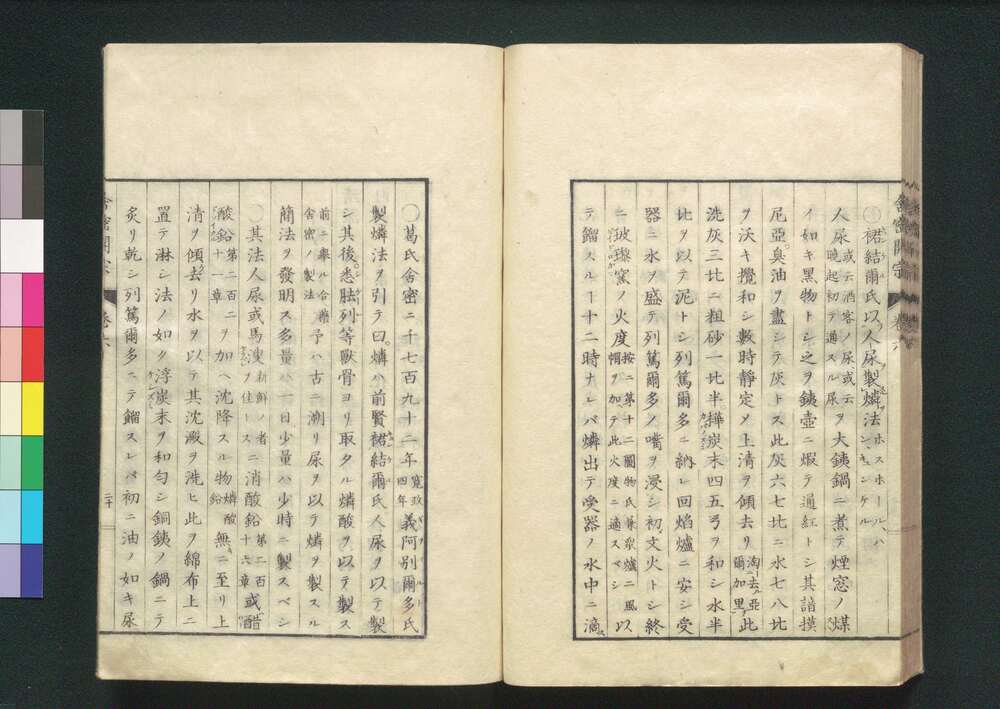 裙結爾氏以人尿製燐法 ホスホールハ シキュンケル
人尿 或云酒客ノ尿或云 晩起初テ通スル尿 ヲ大銕鍋ニ煮テ煙窓ノ煤
イ如キ黒物トシ之ヲ銕壷ニ煆テ通紅トシ其諳摸
尼亞臭油ヲ盡シテ灰トス此灰六七比ニ水七八比
ヲ沃キ攪和シ數時靜定メ上清ヲ傾去リ 淘去亞 爾加里 此
洗灰三比ニ粗砂一比半樺炭末四五弓ヲ和シ水半
比ヲ以テ泥トシ列篤爾多ニ納レ回焰爐ニ安シ受
器ニ水ヲ盛テ列篤爾多ノ嘴ヲ浸シ初文火トシ終
ニ玻瓈窯ノ火度 按ニ第十二圖物氏兼衆爐ニ風 帽ヲ加テ此火度ニ適スベシ 以
テ餾スルヿ十二時ナレバ燐出テ受器ノ水中ニ滴
舎密開宗 巻六
葛氏舎密ニ千七百九十二年 寛政 四年 義阿別爾多氏
製燐法ヲ引テ曰燐ハ前賢裙結爾氏人尿ヲ以テ製
シ其後悉胠列等獸骨ヨリ取タル燐酸ヲ以テ製ス
前ニ擧ル合藥 舎密ノ製法 予ハ古ニ溯リ尿ヲ以テ燐ヲ製スル
簡法ヲ發明ス多量ハ一日少量ハ少時ニ製スベシ
其法人尿或馬溲 新鮮ノ者 ヲ佳トス ニ消酸鉛 第二百 十六章 或醋
酸鉛 第二百二 十一章 ヲ加ヘ沈降スル物 燐酸 鉛 無ニ至リ上
清ヲ傾去リ水ヲ以テ其沈澱ヲ洗ヒ此ヲ綿布上ニ
置テ淋シ法ノ如ク浮炭末ヲ和匀シ銅銕ノ鍋ニテ
炙リ乾シ列篤爾多ニテ餾スレバ初ニ油ノ如キ尿
舎密開宗 巻六 二十